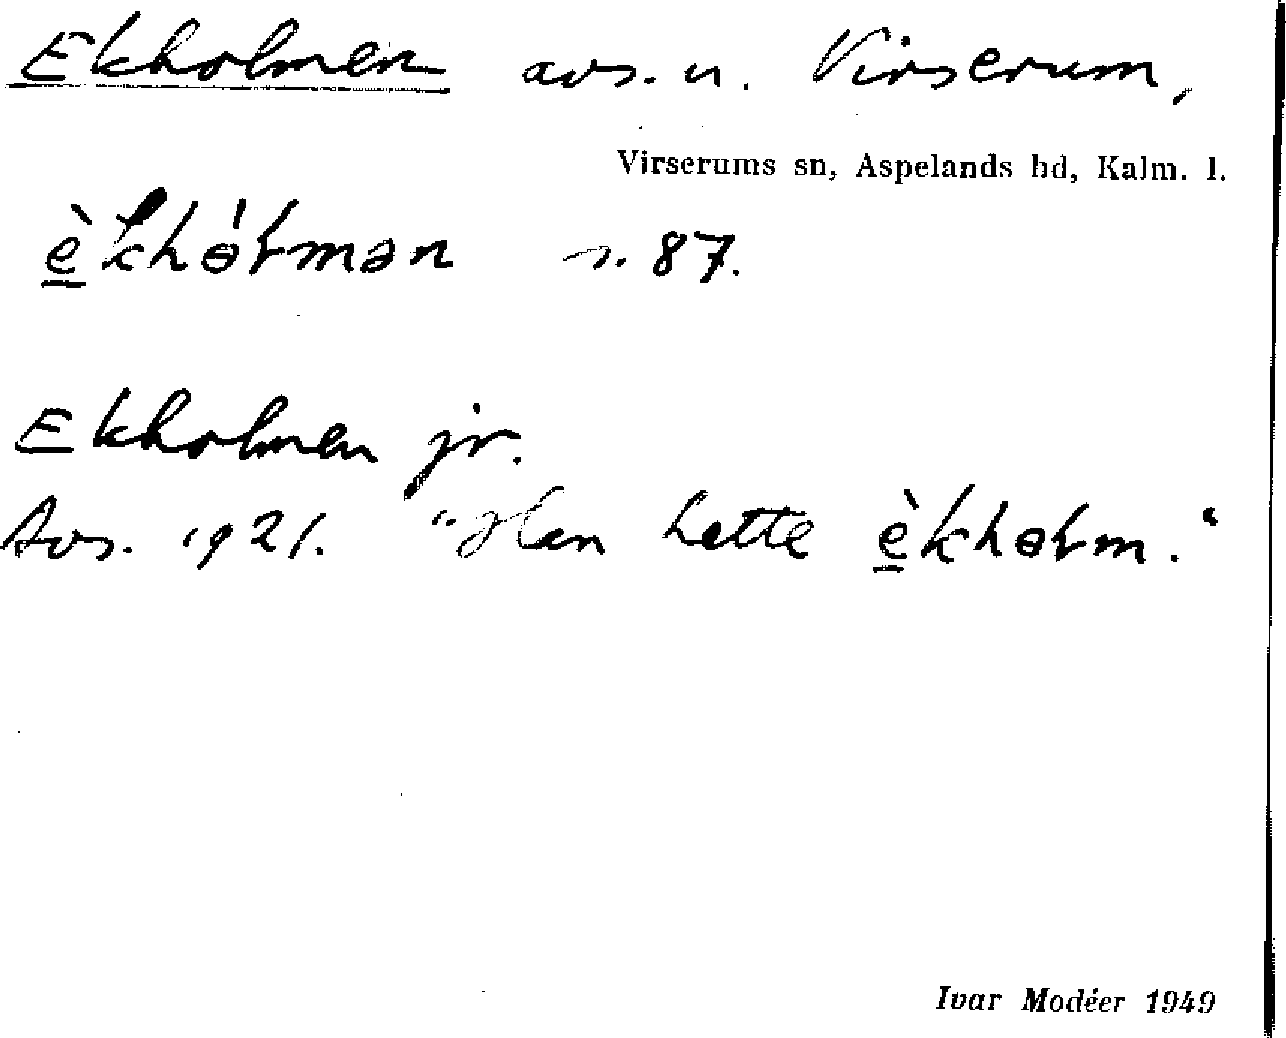 Ekholmen avs. u. Virserum,
Virserums sn, Aspelands hd, Kalm. l.
è̱khɵ́ɫmən s. 87.
Ekholmen jr.
Avs. 1921. "Han hette è̱khɵɫm."
Ivar Modéer 1949